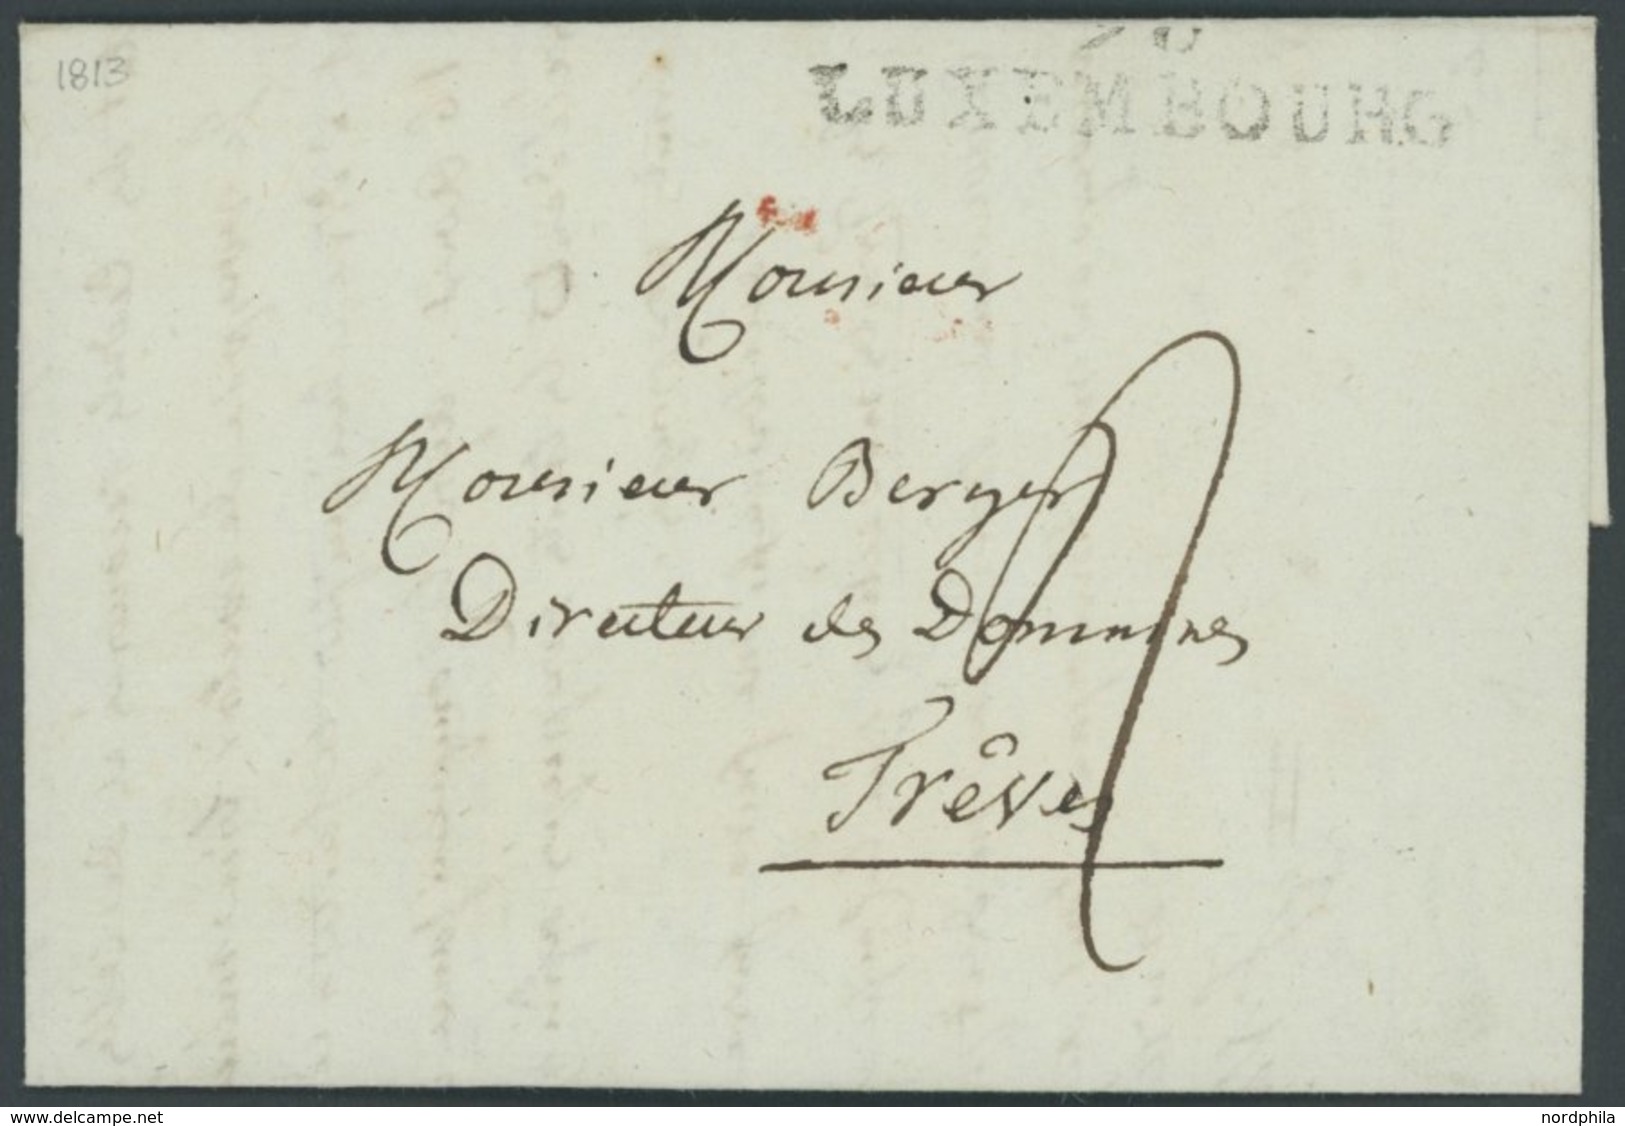 1813
LUXEMBOURG
Monsieur
Monsieur Berger
Directeur des Domaines
Trêves
www.delcampe.net
nordphila